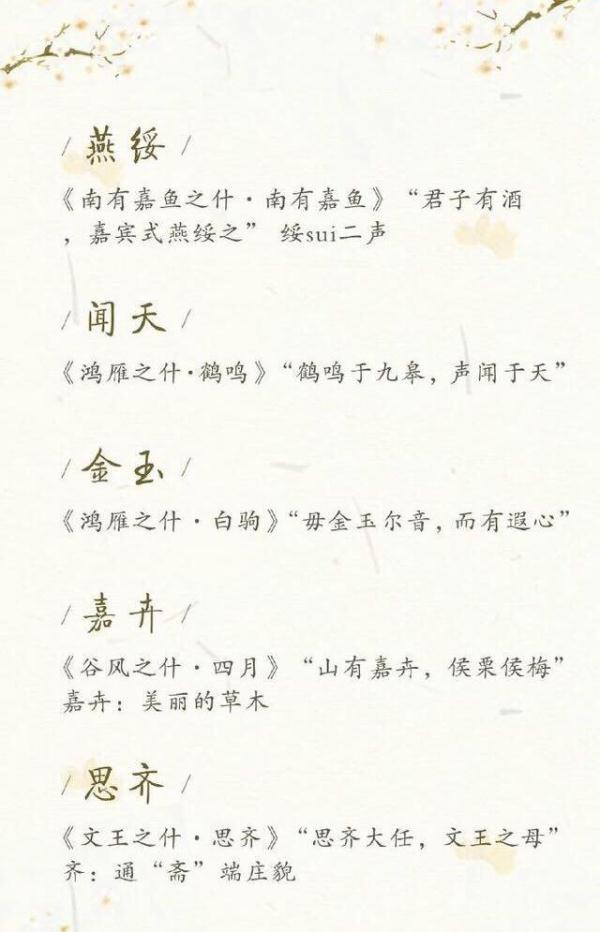 / 燕绥 /
《南有嘉鱼之什·南有嘉鱼》“君子有酒
，嘉宾式燕绥之” 绥sui二声
/ 闻天 /
《鸿雁之什·鹤鸣》“鹤鸣于九皋，声闻于天”
/ 金玉 /
《鸿雁之什·白驹》“毋金玉尔音，而有遐心”
/ 嘉卉 /
《谷风之什·四月》“山有嘉卉，侯栗侯梅”
嘉卉：美丽的草木
/ 思齐 /
《文王之什·思齐》“思齐大任，文王之母”
齐：通“斋”端庄貌